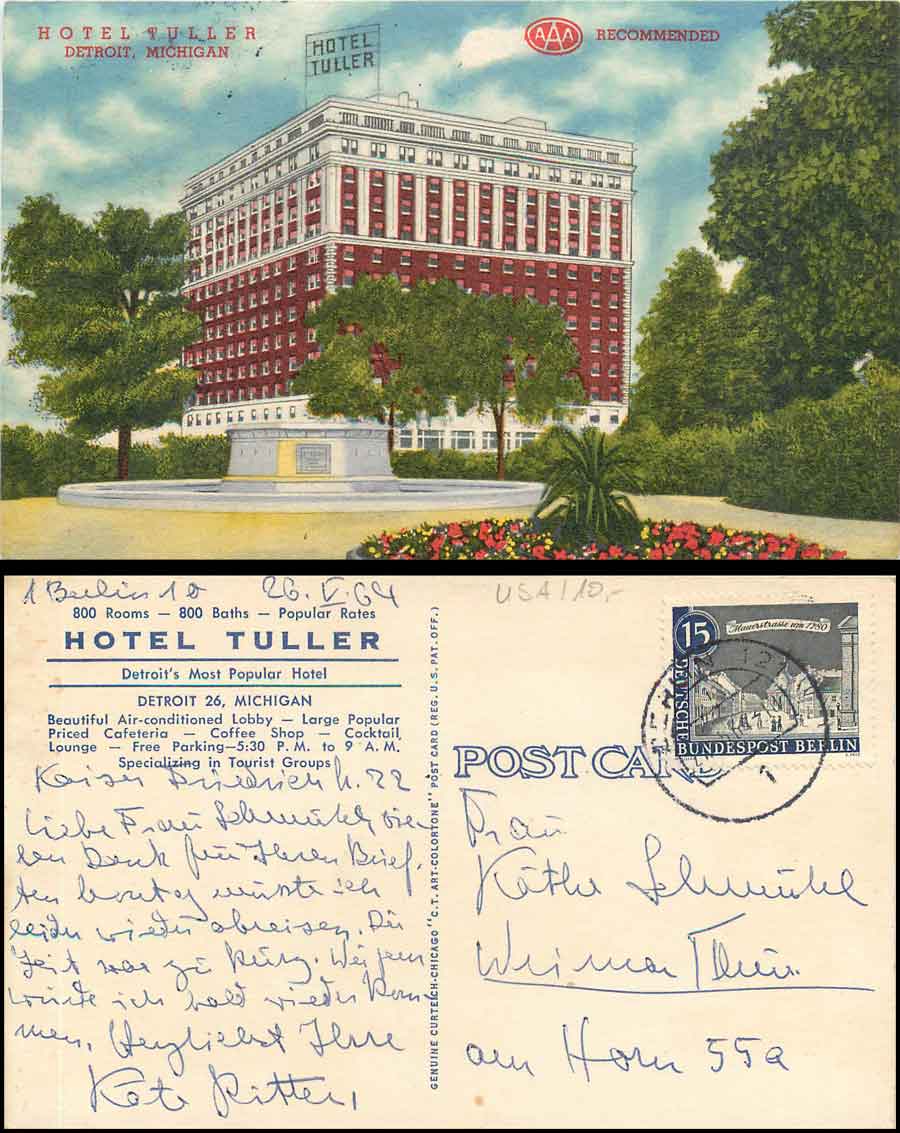 HOTEL TULLER
DETROIT, MICHIGAN
HOTEL
TULLER
AAA RECOMMENDED
1 Berlin 10 26. V. 64
800 Rooms — 800 Baths — Popular Rates
HOTEL TULLER
Detroit's Most Popular Hotel
DETROIT 26, MICHIGAN
Beautiful Air-conditioned Lobby — Large Popular
Priced Cafeteria — Coffee Shop — Cocktail
Lounge — Free Parking—5:30 P.M. to 9 A.M.
Specializing in Tourist Groups
Kaiser Friedrich 22
Liebe Frau Schmühl, vie-
len Dank für Ihren Brief.
Am Montag müsste ich
leider wieder abreisen. Die
Zeit war zu kurz. Wie gern
würde ich bald wieder kom-
men, Herzliebst Ihre
Käte Ritter,
GENUINE CURTEICH-CHICAGO "C.T. ART-COLORTONE" POST CARD (REG. U.S. PAT. OFF.)
USA/10,-
15
Mauerstrasse um 1780
DEUTSCHE
BUNDESPOST BERLIN
POST CARD
Frau
Käthe Schmühl
Weimar Thür.
am Horn 55a